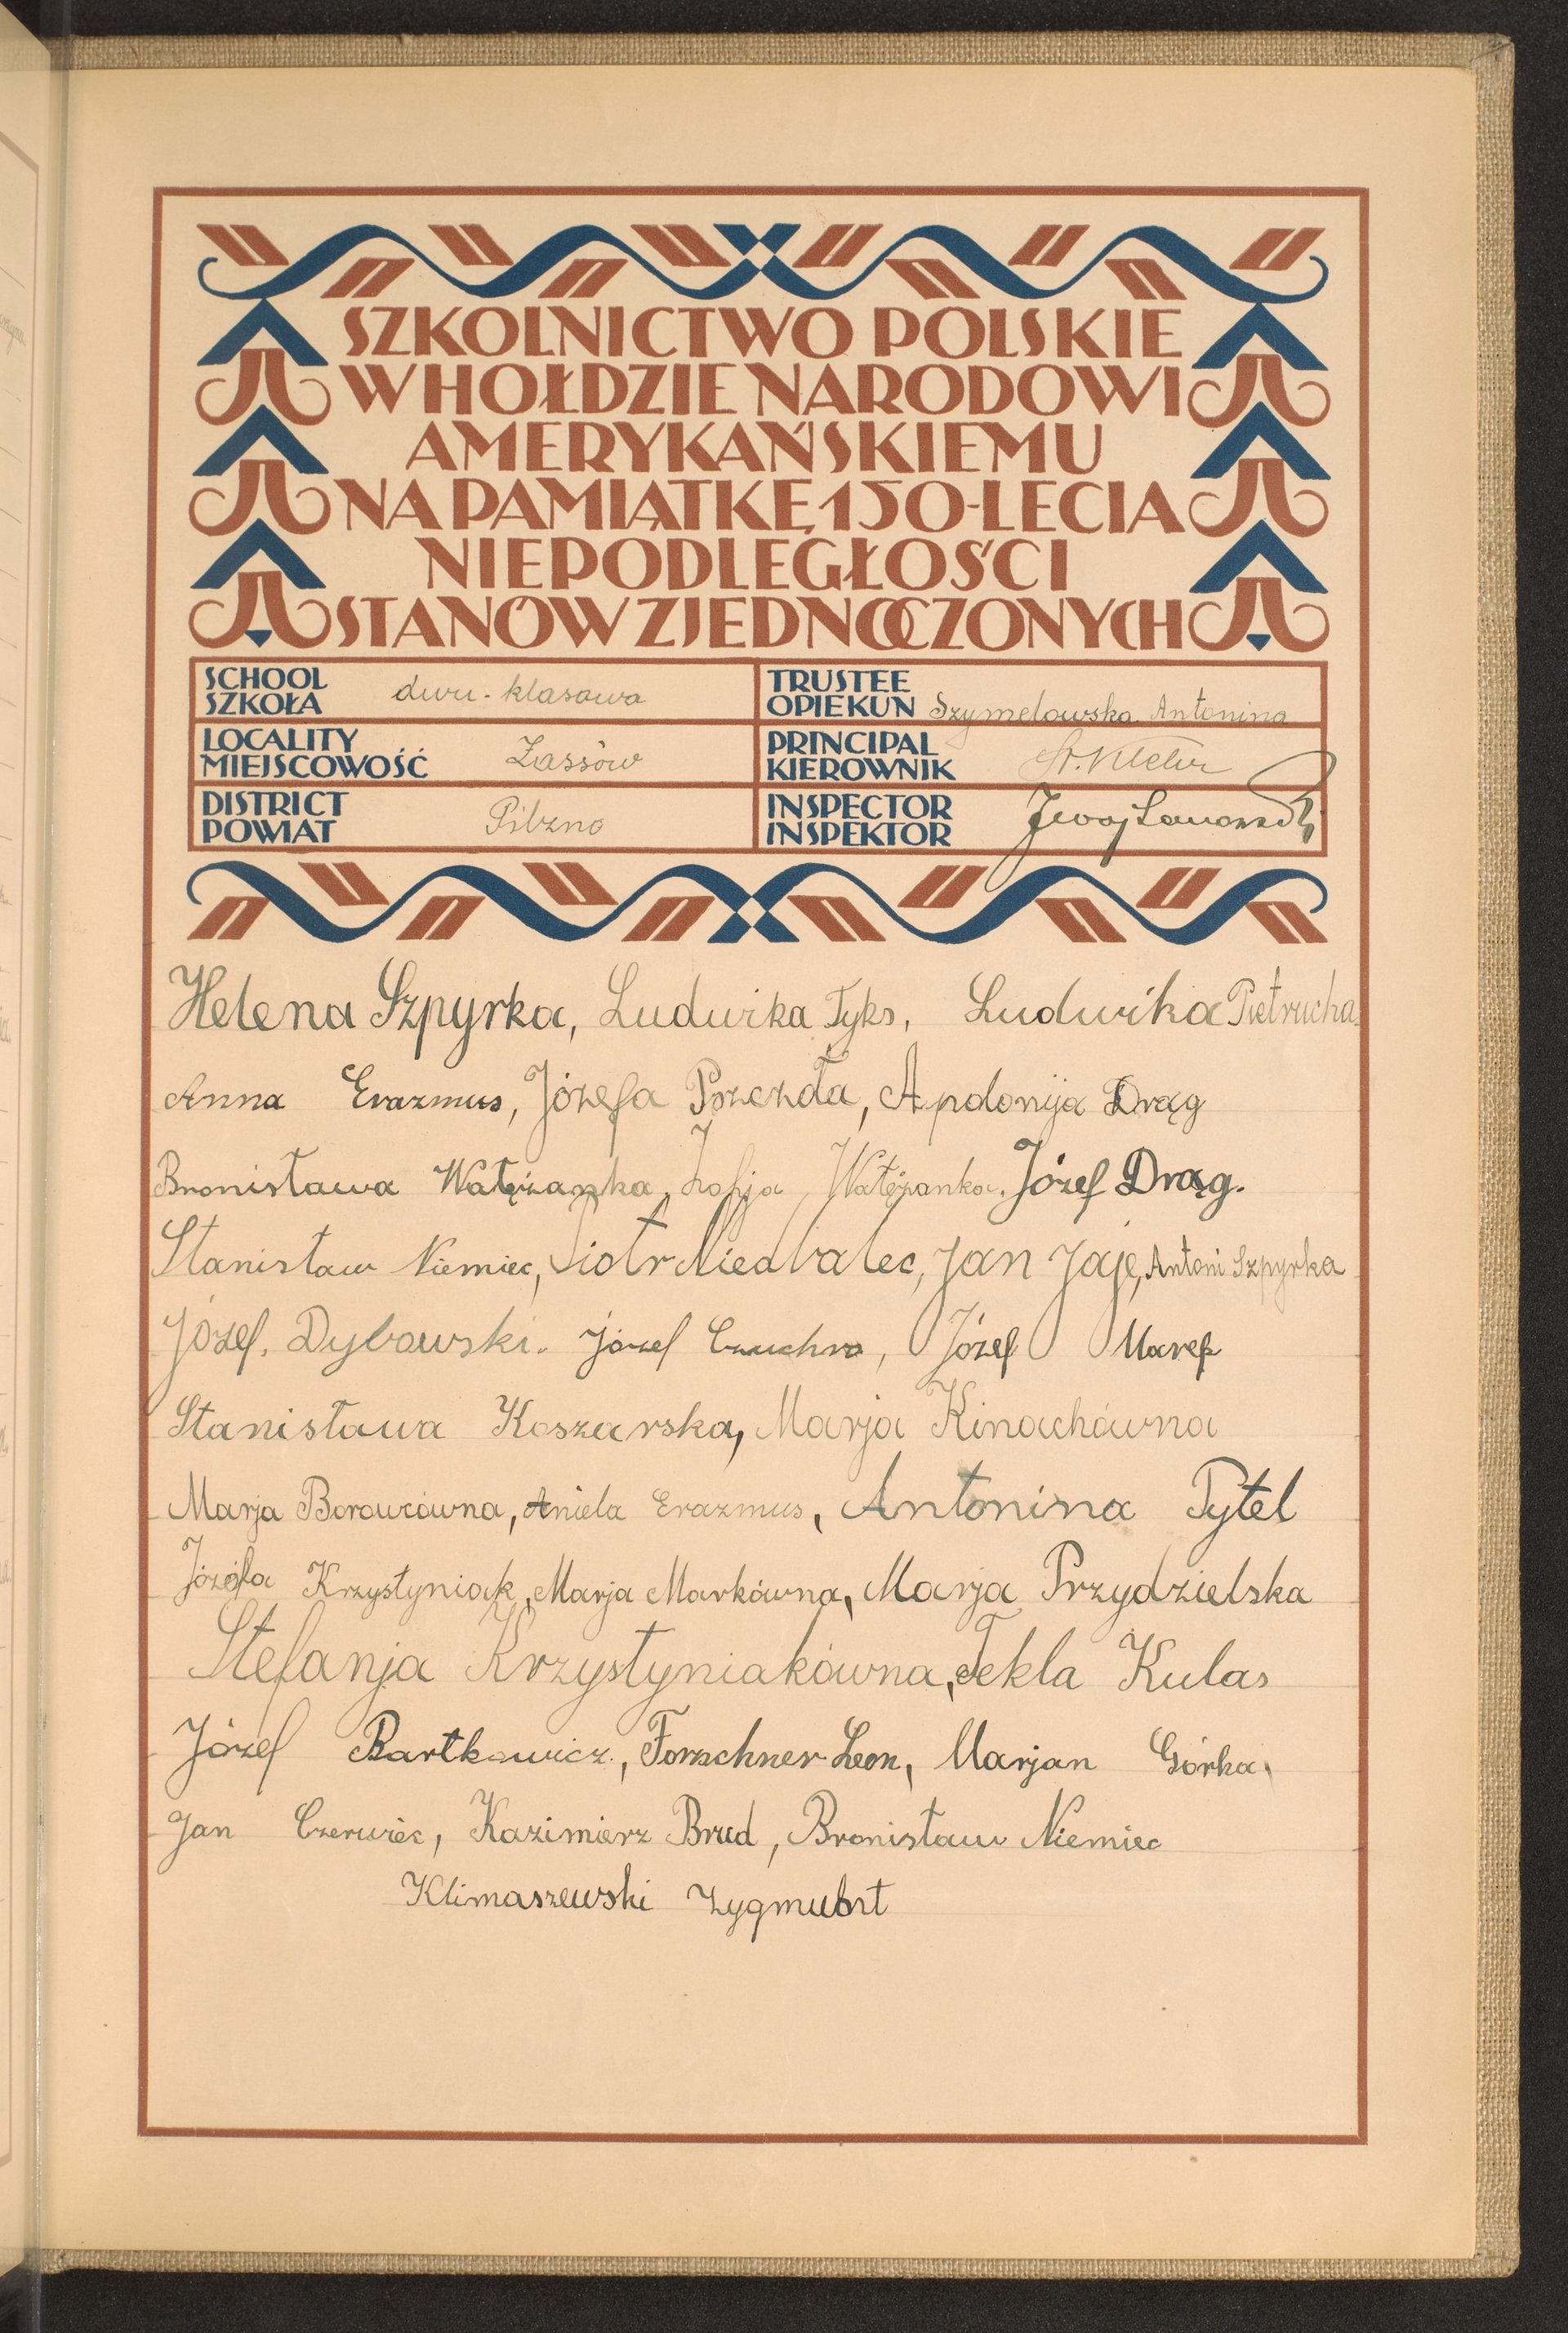 SZKOLNICTWO POLSKIE
W HOŁDZIE NARODOWI
AMERYKAŃSKIEMU
NA PAMIĄTKĘ 150-LECIA
NIEPODLEGŁOŚCI
STANÓW ZJEDNOCZONYCH
SCHOOL
SZKOŁA dwu-klasowa
TRUSTEE
OPIEKUN Szymelowska Antonina
LOCALITY
MIEJSCOWOŚĆ Zassów
PRINCIPAL
KIEROWNIK St.
DISTRICT
POWIAT Pilzno
INSPECTOR
INSPEKTOR
Helena Szpyrka, Ludwika Tyks, Ludwika Pietrucha
Anna Erazmus, Józefa Pszczoła, Apolonija Drąg
Bronisława Watężanka, Zofja Watężanka, Józef Drąg.
Stanisław Niemiec, Piotr Niedbalec, Jan Jaje, Antoni Szpyrka
Józef Dybowski. Józef Czuchra, Józef Marek
Stanisława Koszarska, Marja Kinachówna
Marja Borowcówna, Aniela Erazmus, Antonina Pytel
Józefa Krzystyniak, Marja Markówna, Marja Przydzielska
Stefanja Krzystyniakówna, Tekla Kulas
Józef Bartkowicz, Forschner Leon, Marjan Górka,
Jan Czerwiec, Kazimierz Brud, Bronisław Niemiec
Klimaszewski Zygmunt